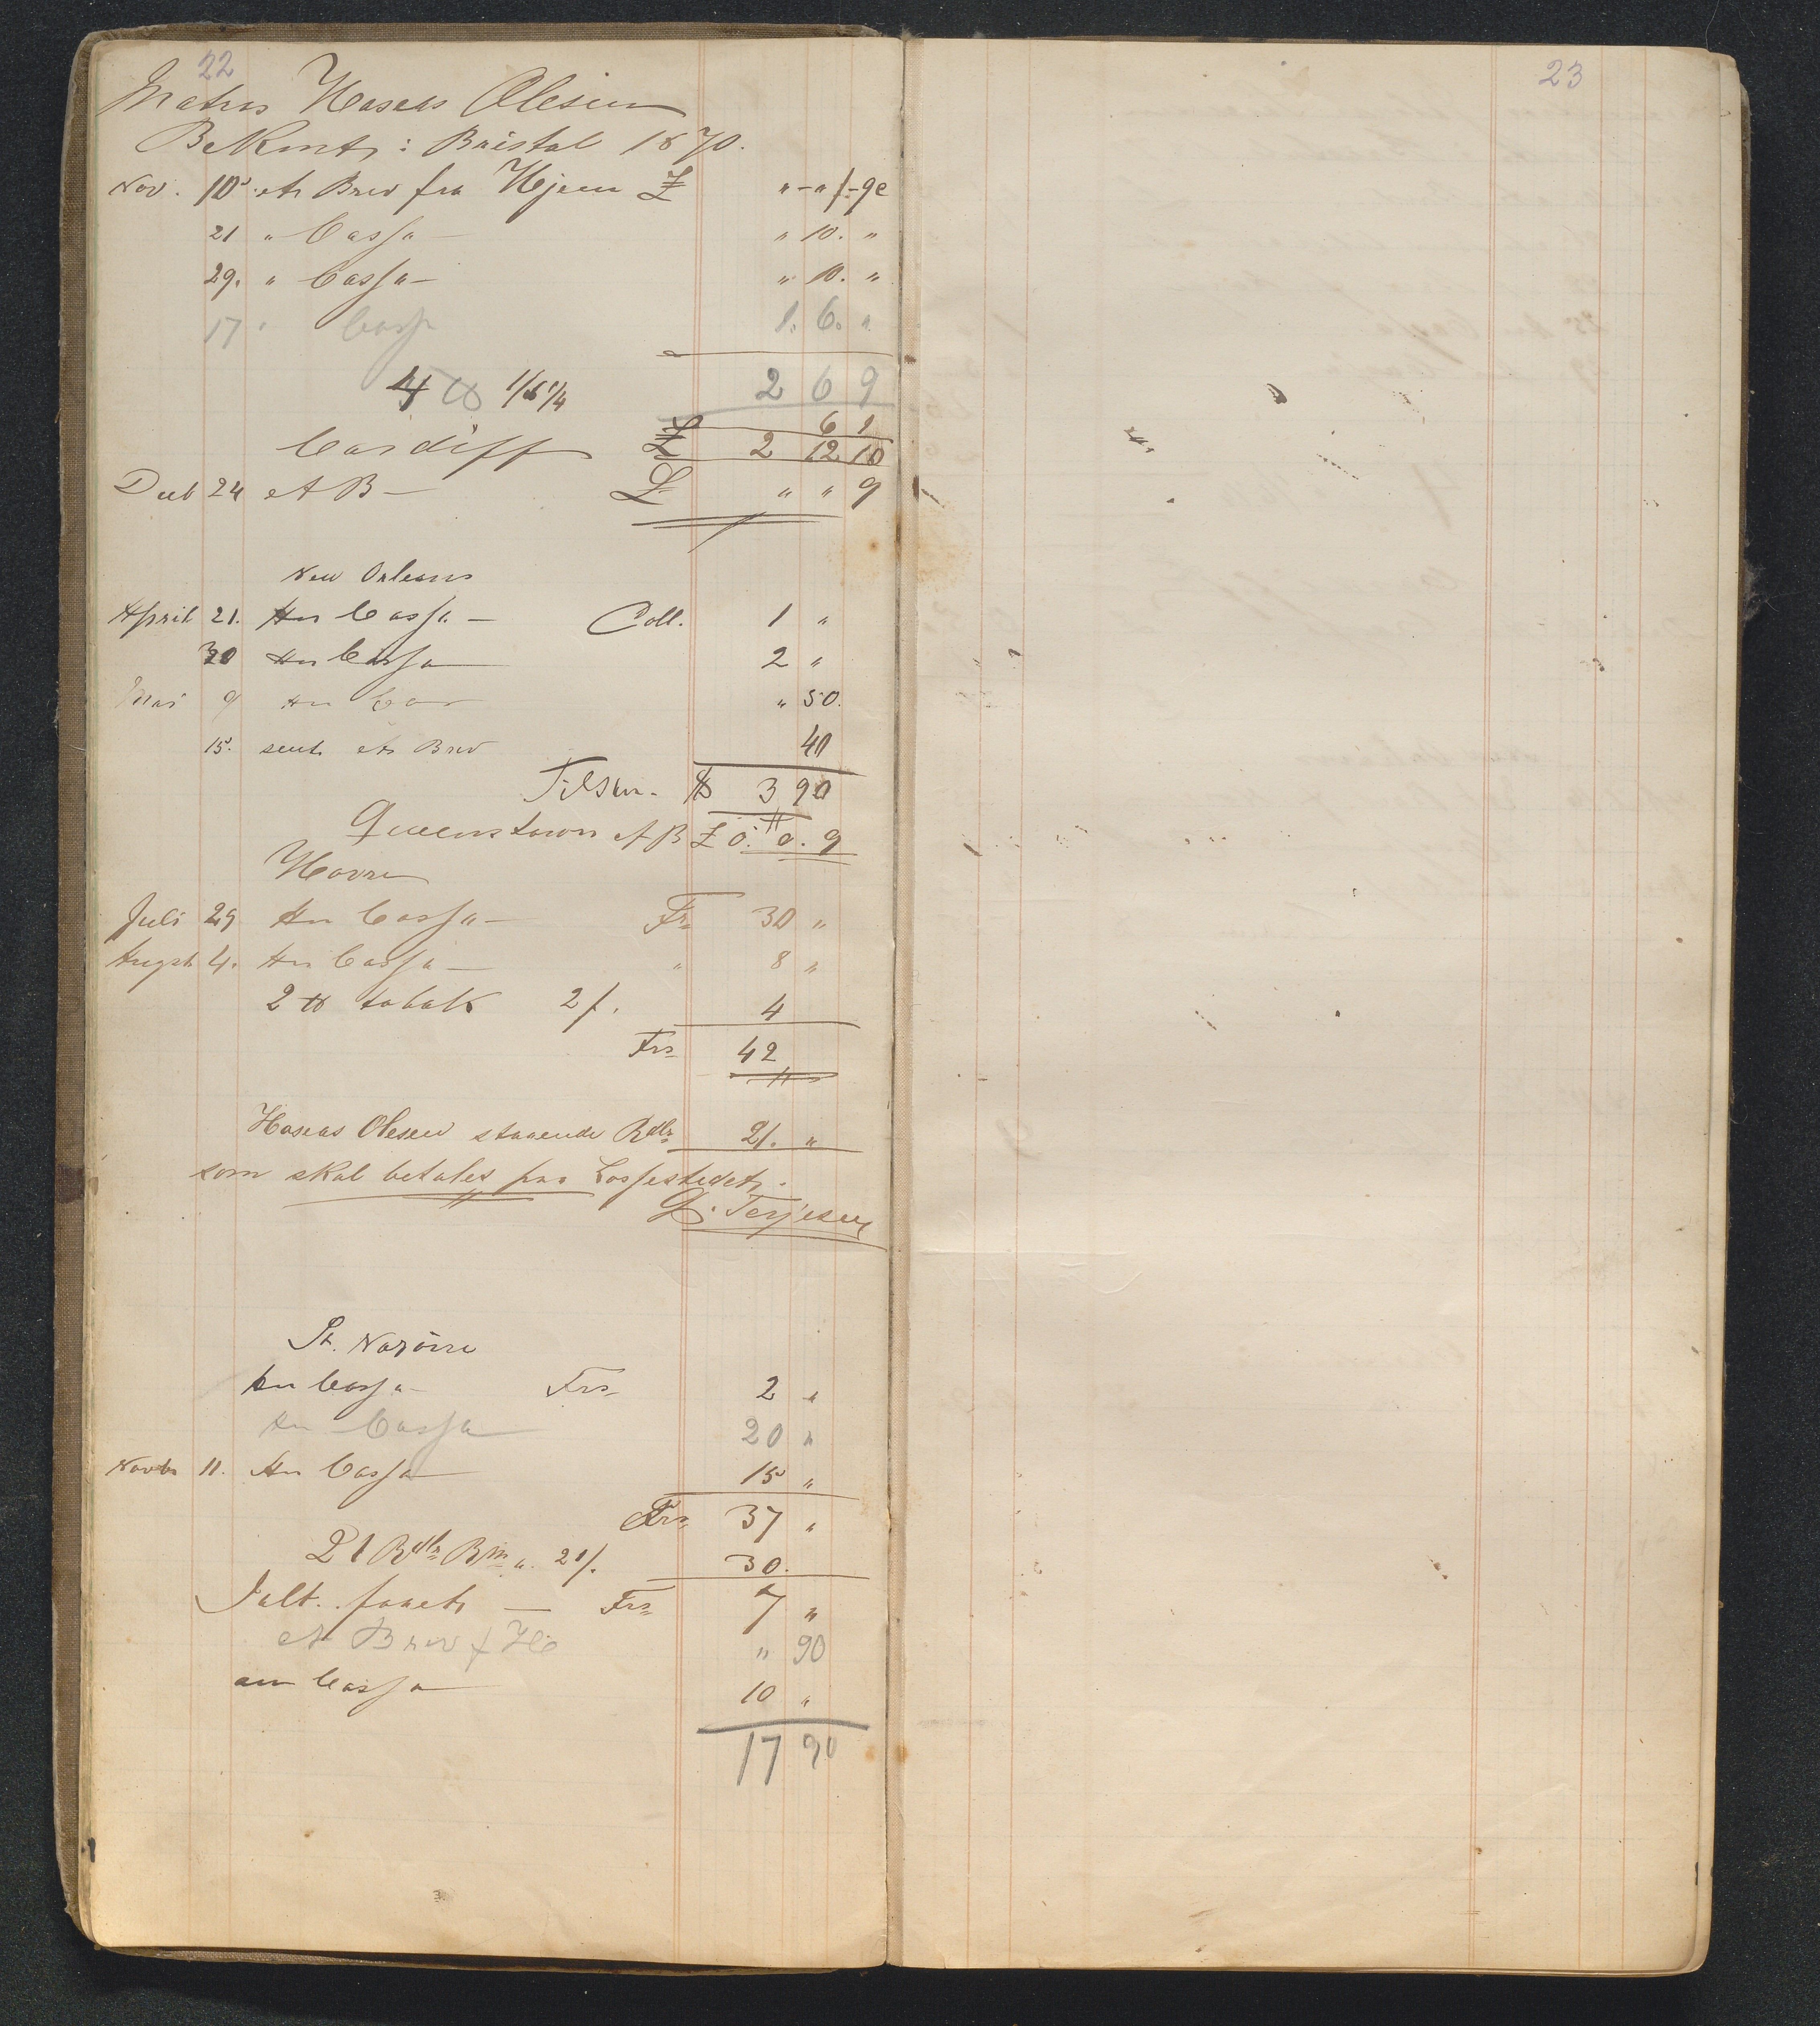 22
Matros Haseas Olesen
Bekmt: Bristol 1870.
Nov. 10 et Brev fra Hjem £ " - " /-9e
21 " Cassa — " 10. "
29. " Cassa — " 10. "
17 " Cassa 1. 6. "
2 6 9
4 ℔ 1/6 1/4 6 1
Cardiff £ 2 12 10
Decb 24 et B — £ " " 9
New Orleans
April 21. An Cassa — Doll. 1 "
30 An Cassa 2 "
Mai 9 An Cas " 50.
15. sent et Brev 40
Tilsm. $ 3 90
Queenstown et B £ 0. 0. 9
Havre
Juli 29 An Cassa — Fr 30 "
Augst 4. An Cassa — " 8 "
2 ℔ tobak 2/. 4
Frs 42
Haseas Olesen staaende Rdlr 21. "
som skal betales paa Lossestedet.
G. Terjesen
St. Nazaire
An Cassa — Frs 2 "
An Cassa 20 "
Novbr 11. An Cassa 15 "
Frs 37 "
21 Rdlr a. 21/. 30.
Ialt. faaet — Frs 7 "
et Brev f Hj " 90
an Cassa 10 "
17 90
23